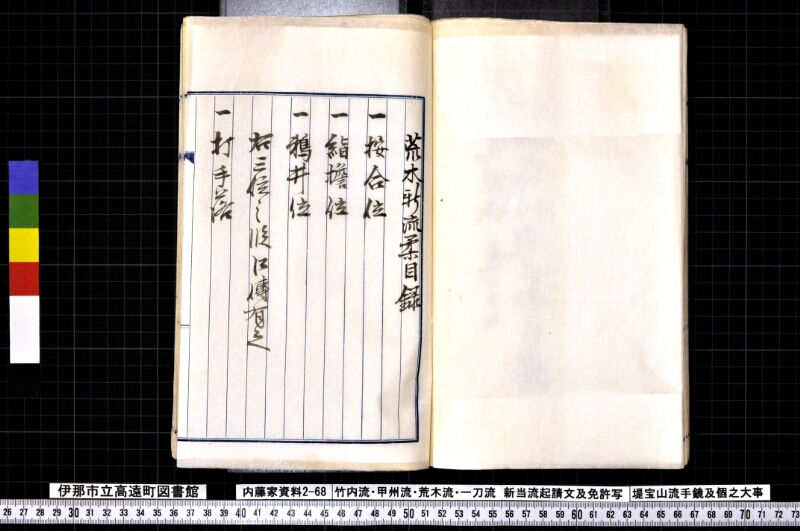 荒木新流柔目録
一 按合位
一 詣擔位
一 鵜井位
右三位之段口傳有之
一 打手落
伊那市立高遠町図書館
内藤家資料2-68
竹内流・甲州流・荒木流・一刀流 新当流起請文及免許写
堤宝山流手鏡及個之大事
26 27 28 29 30 31 32 33 34 35 36 37 38 39 40 41 42 43 44 45 46 47 48 49 50 51 52 53 54 55 56 57 58 59 60 61 62 63 64 65 66 67 68 69 70 71 72 73